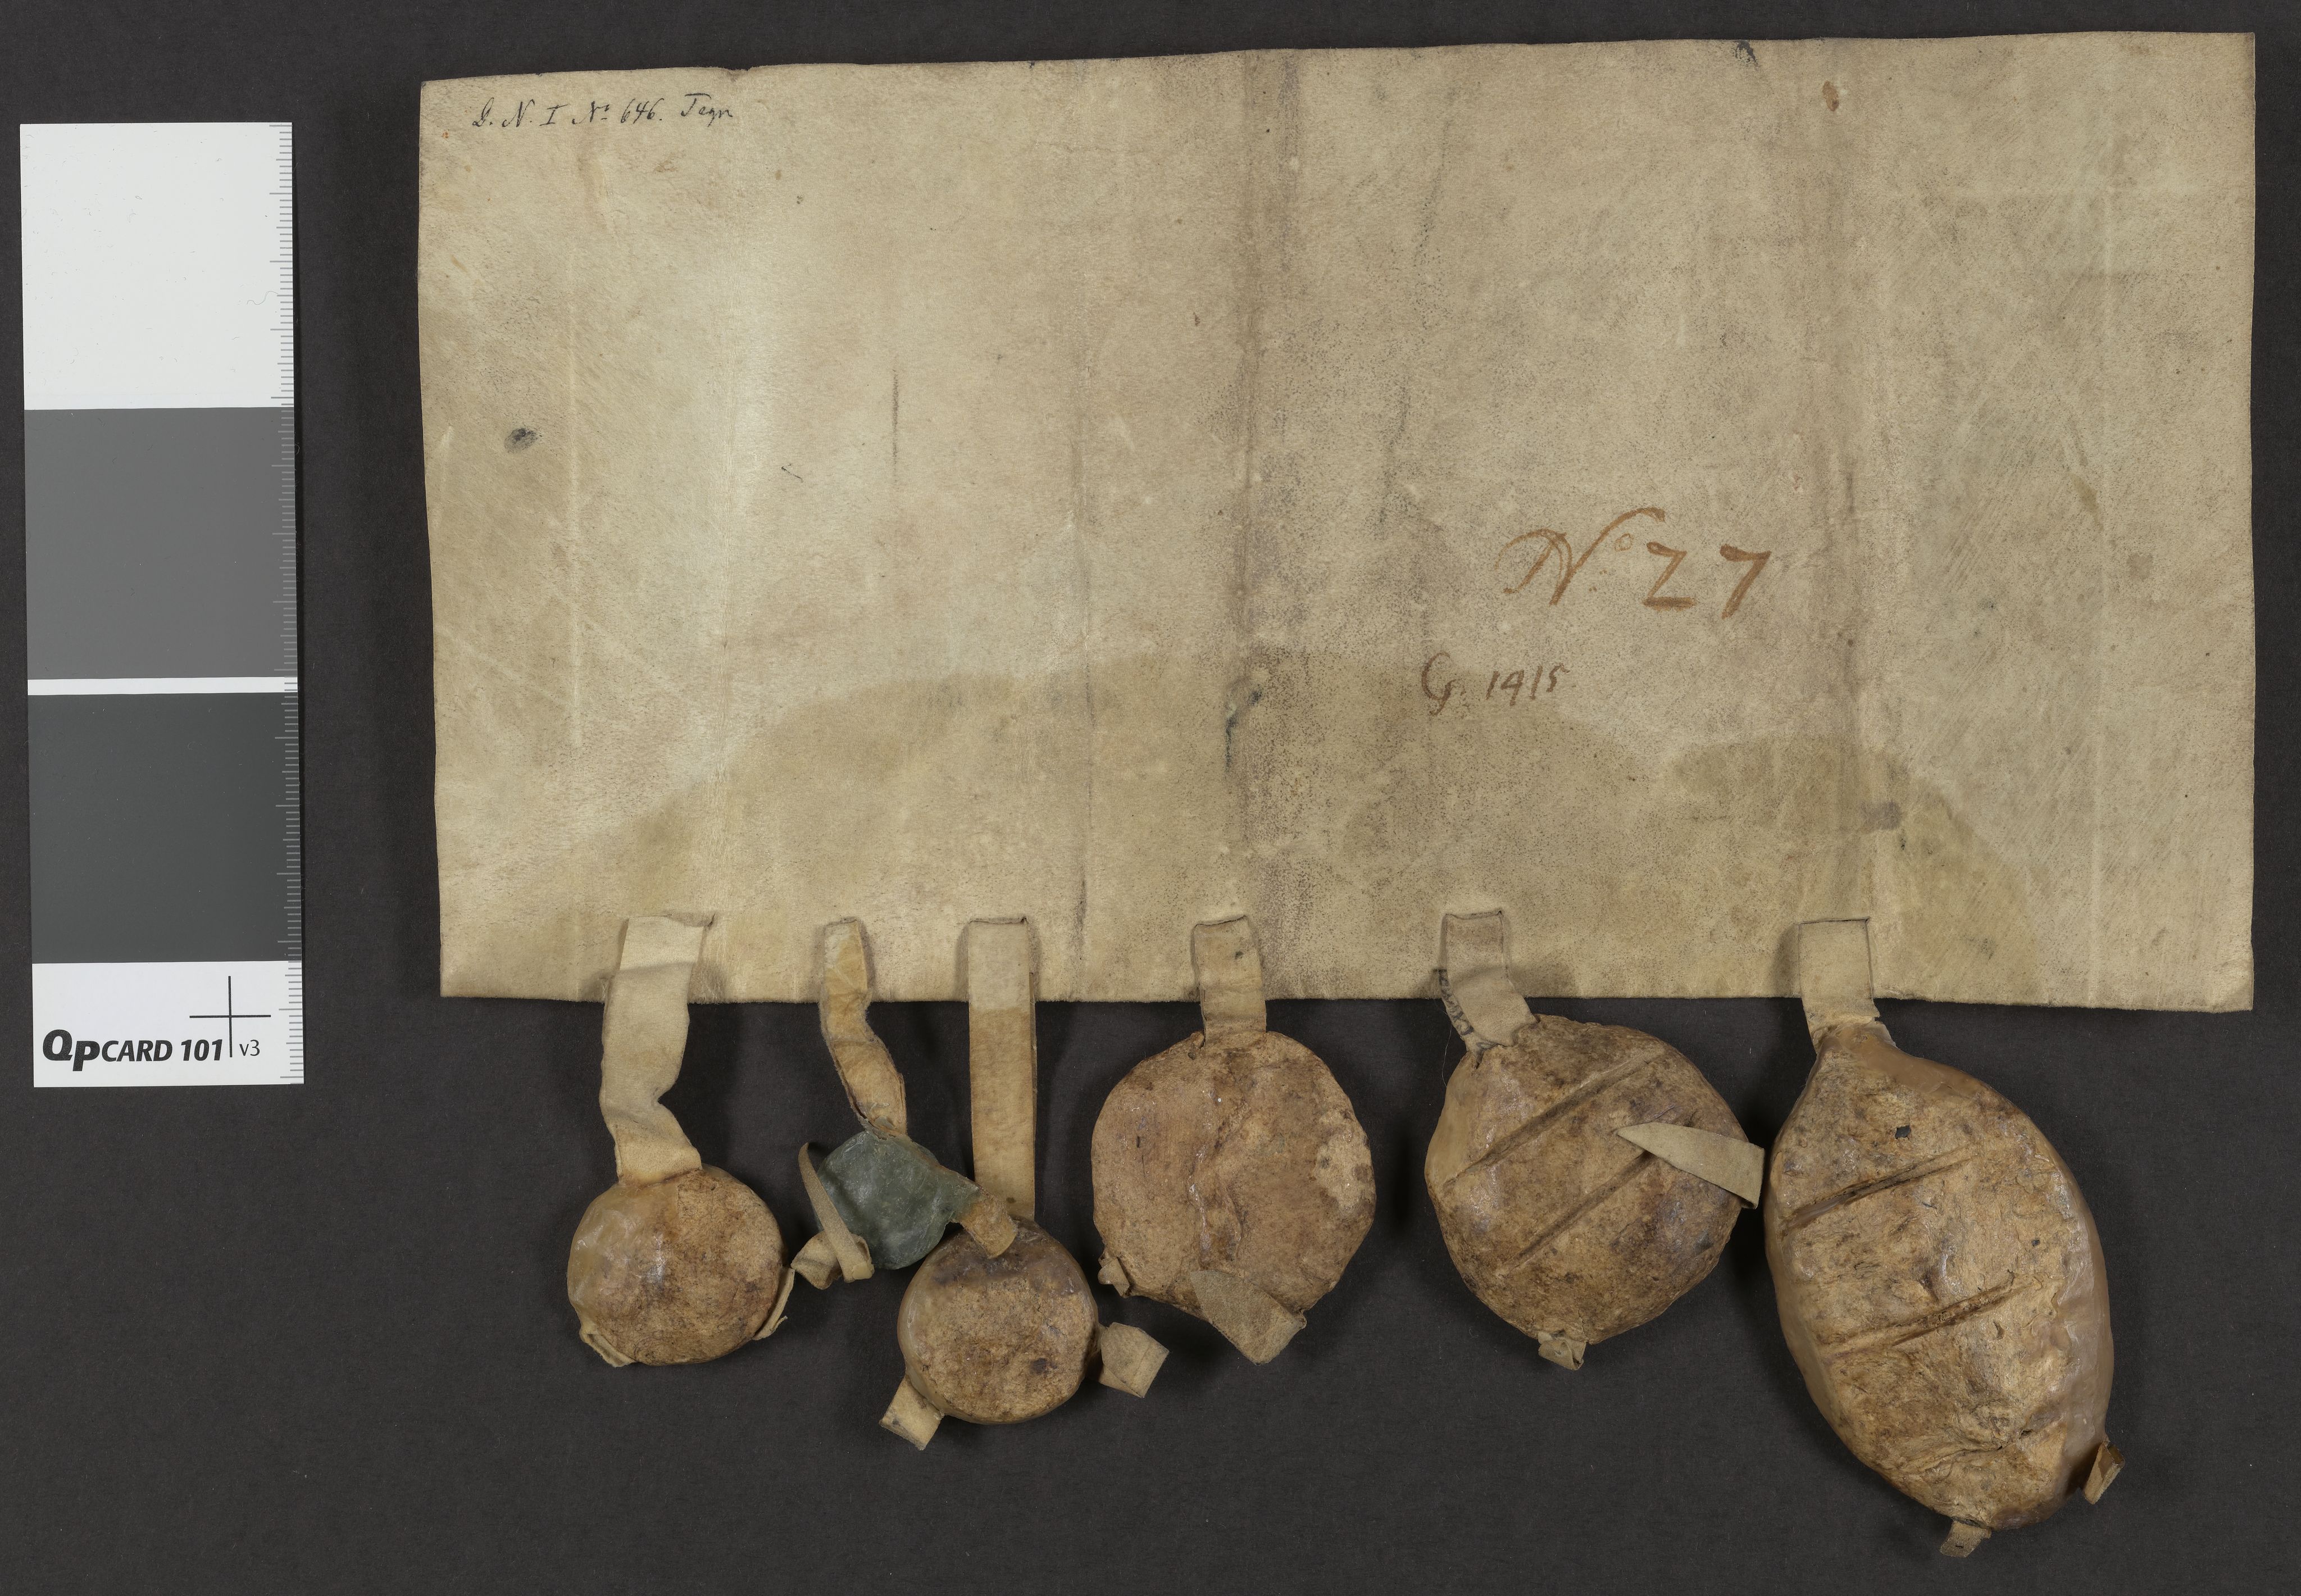 D. N. I No 646. Tegn
No 27
G. 1415
QpCARD 101 v3